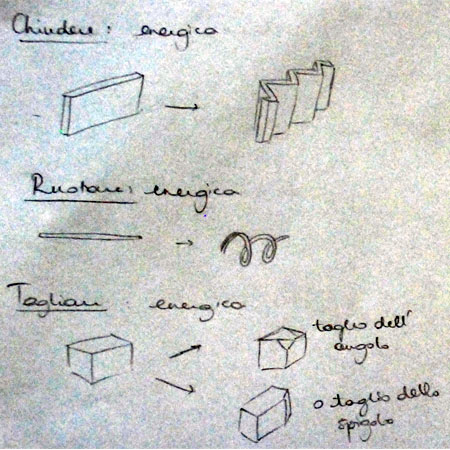 Chiudere: energica
Ruotare: energica
Tagliare: energica
taglio dell'
angolo
o taglio dello
spigolo